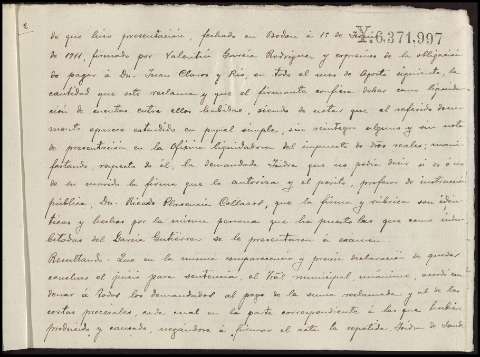 2
Y.6.371.997
de que hizo presentación, fechado en Bodon á 15 de
de 1911, firmado por Valentín García Rodríguez y expresivo de la obligación
de pagar á Dn. Juan Claros y Rio, en todo el mes de Agosto siguiente, la
cantidad que este reclama y que el firmante confiesa deber como liquida-
ción de cuentas entre ellos habidas, siendo de notar que el referido docu-
mento aparece extendido en papel simple, sin reintegro alguno y sin nota
de presentación en la Oficina liquidadora del impuesto de dros reales; mani-
festando, respecto de él, la demandada Isidra que no podia decir si es ó no
de su marido la firma que lo autoriza y el perito, profesor de instrucción
pública, Dn. Ricardo Plasencia Collazos, que la firma y rúbrica son idén-
ticas y hechas por la misma persona que ha puesto las que como indu-
bitadas del García Gutierrez se le presentaron á examen.
Resultando: Que en la misma comparecencia y previa declaración de quedar
concluso el juicio para sentencia, el Tral municipal unánime, acordó con-
denar á todos los demandados al pago de la suma reclamada y al de las
costas procesales, cada cual en la parte correspondiente á las que hubiere
producido y causado, negándose á firmar el acta la repetida Isidra de